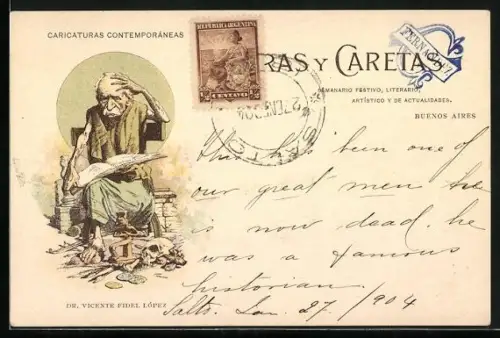 CARICATURAS CONTEMPORÁNEAS
REPUBLICA ARGENTINA
CENTAVO
RAS Y CARETAS
SEMANARIO FESTIVO, LITERARIO,
ARTÍSTICO Y DE ACTUALIDADES.
BUENOS AIRES
SALTO
This has been one of
our great men he
is now dead. he
was a famous
historian
Salto. Jan. 27/904
DR. VICENTE FIDEL LÓPEZ